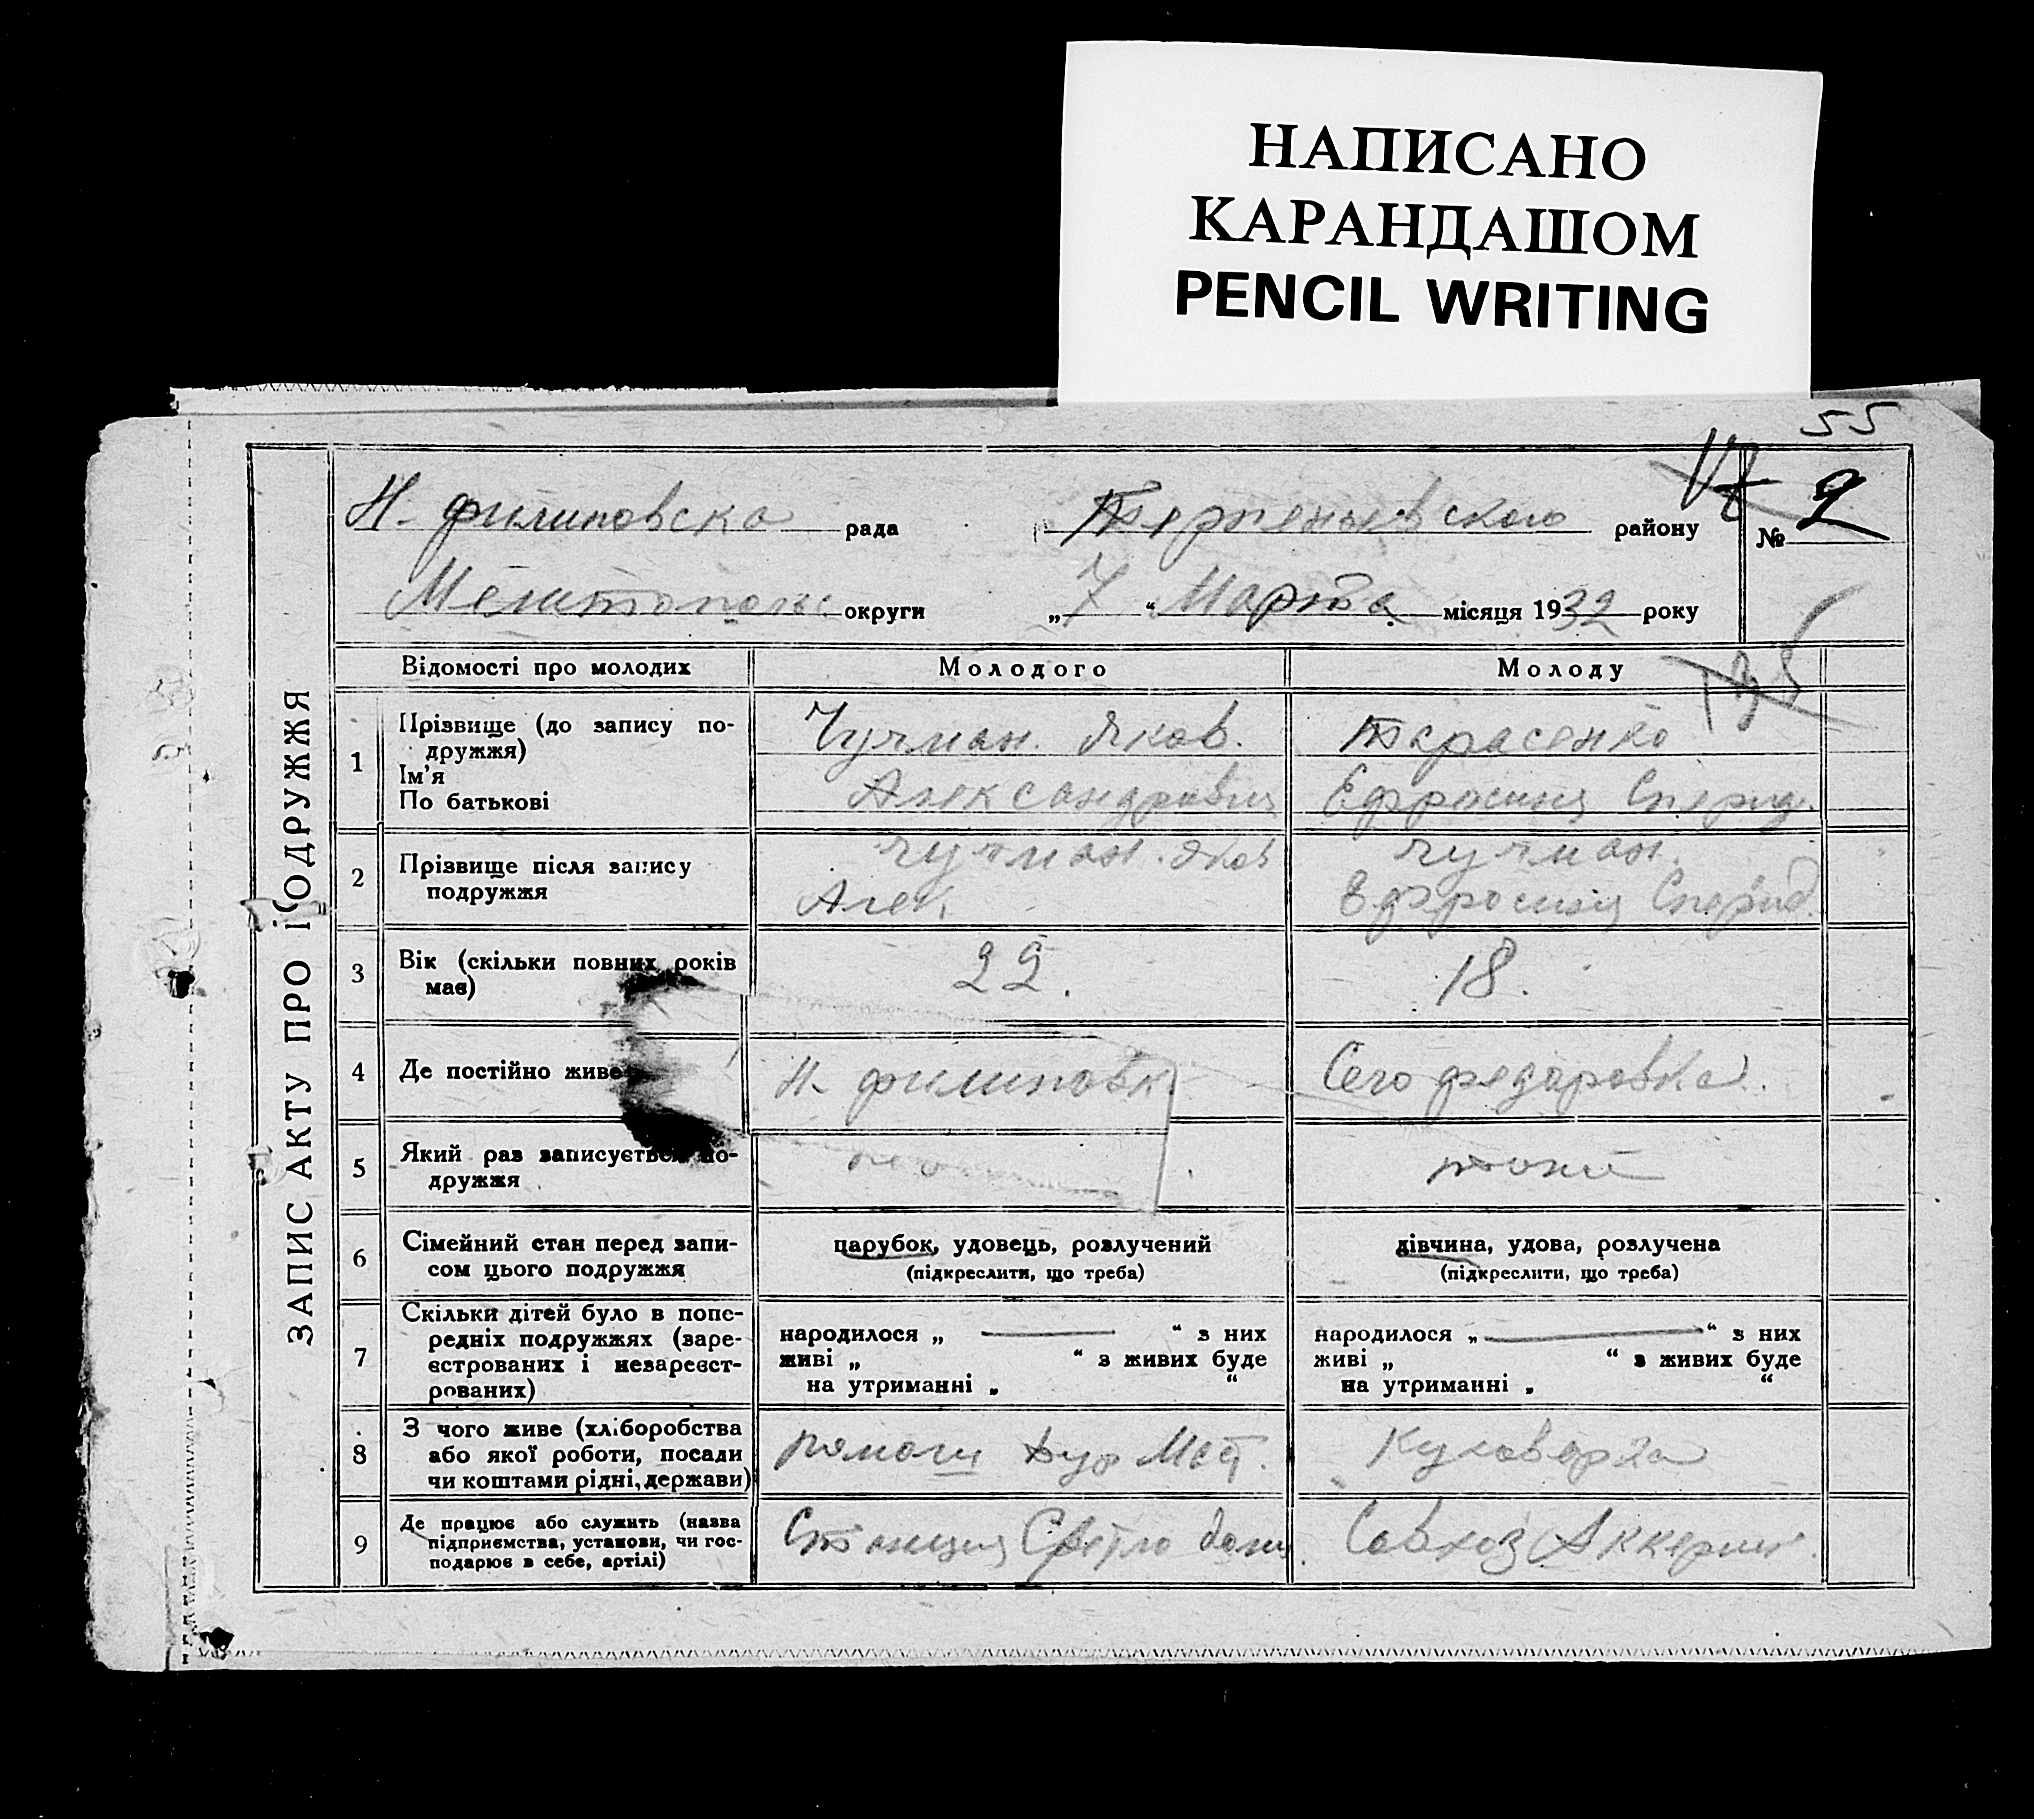 НАПИСАНО
КАРАНДАШОМ
PENCIL WRITING
55
Н. филиповска рада Терпеньевского району № 2
Мелитопольс округи „ 7 “ Марта місяця 1932 року
ЗАПИС АКТУ ПРО ПОДРУЖЖЯ
Відомості про молодих Молодого Молоду
1 Прізвище (до запису по-
дружжя)
Ім’я
По батькові
Чучман. Яков.
Александрович
Тарасенко
Ефросиния Сперид.
2 Прізвище після запису
подружжя
Чучман. Яков
Алек.
Чучман.
Ефросиния Сперид.
3 Вік (скільки повних років
має)
22.
18.
4 Де постійно живе
Н. филиповк
Село федаровка.
5 Який раз записується по-
дружжя
6 Сімейний стан перед запи-
сом цього подружжя
парубок, удовець, розлучений
(підкреслити, що треба)
дівчина, удова, розлучена
(підкреслити, що треба)
7 Скільки дітей було в попе-
редніх подружжях (заре-
єстрованих і незареєст-
рованих)
народилося „ “ з них
живі „ “ з живих буде
на утриманні „ “
народилося „ “ з них
живі „ “ з живих буде
на утриманні „ “
8 З чого живе (хліборобства
або якої роботи, посади
чи коштами рідні, держави)
9 Де працює або служить (назва
підприємства, установи, чи гос-
подарює в себе, артілі)
Станция
Совхоз Аккерм.